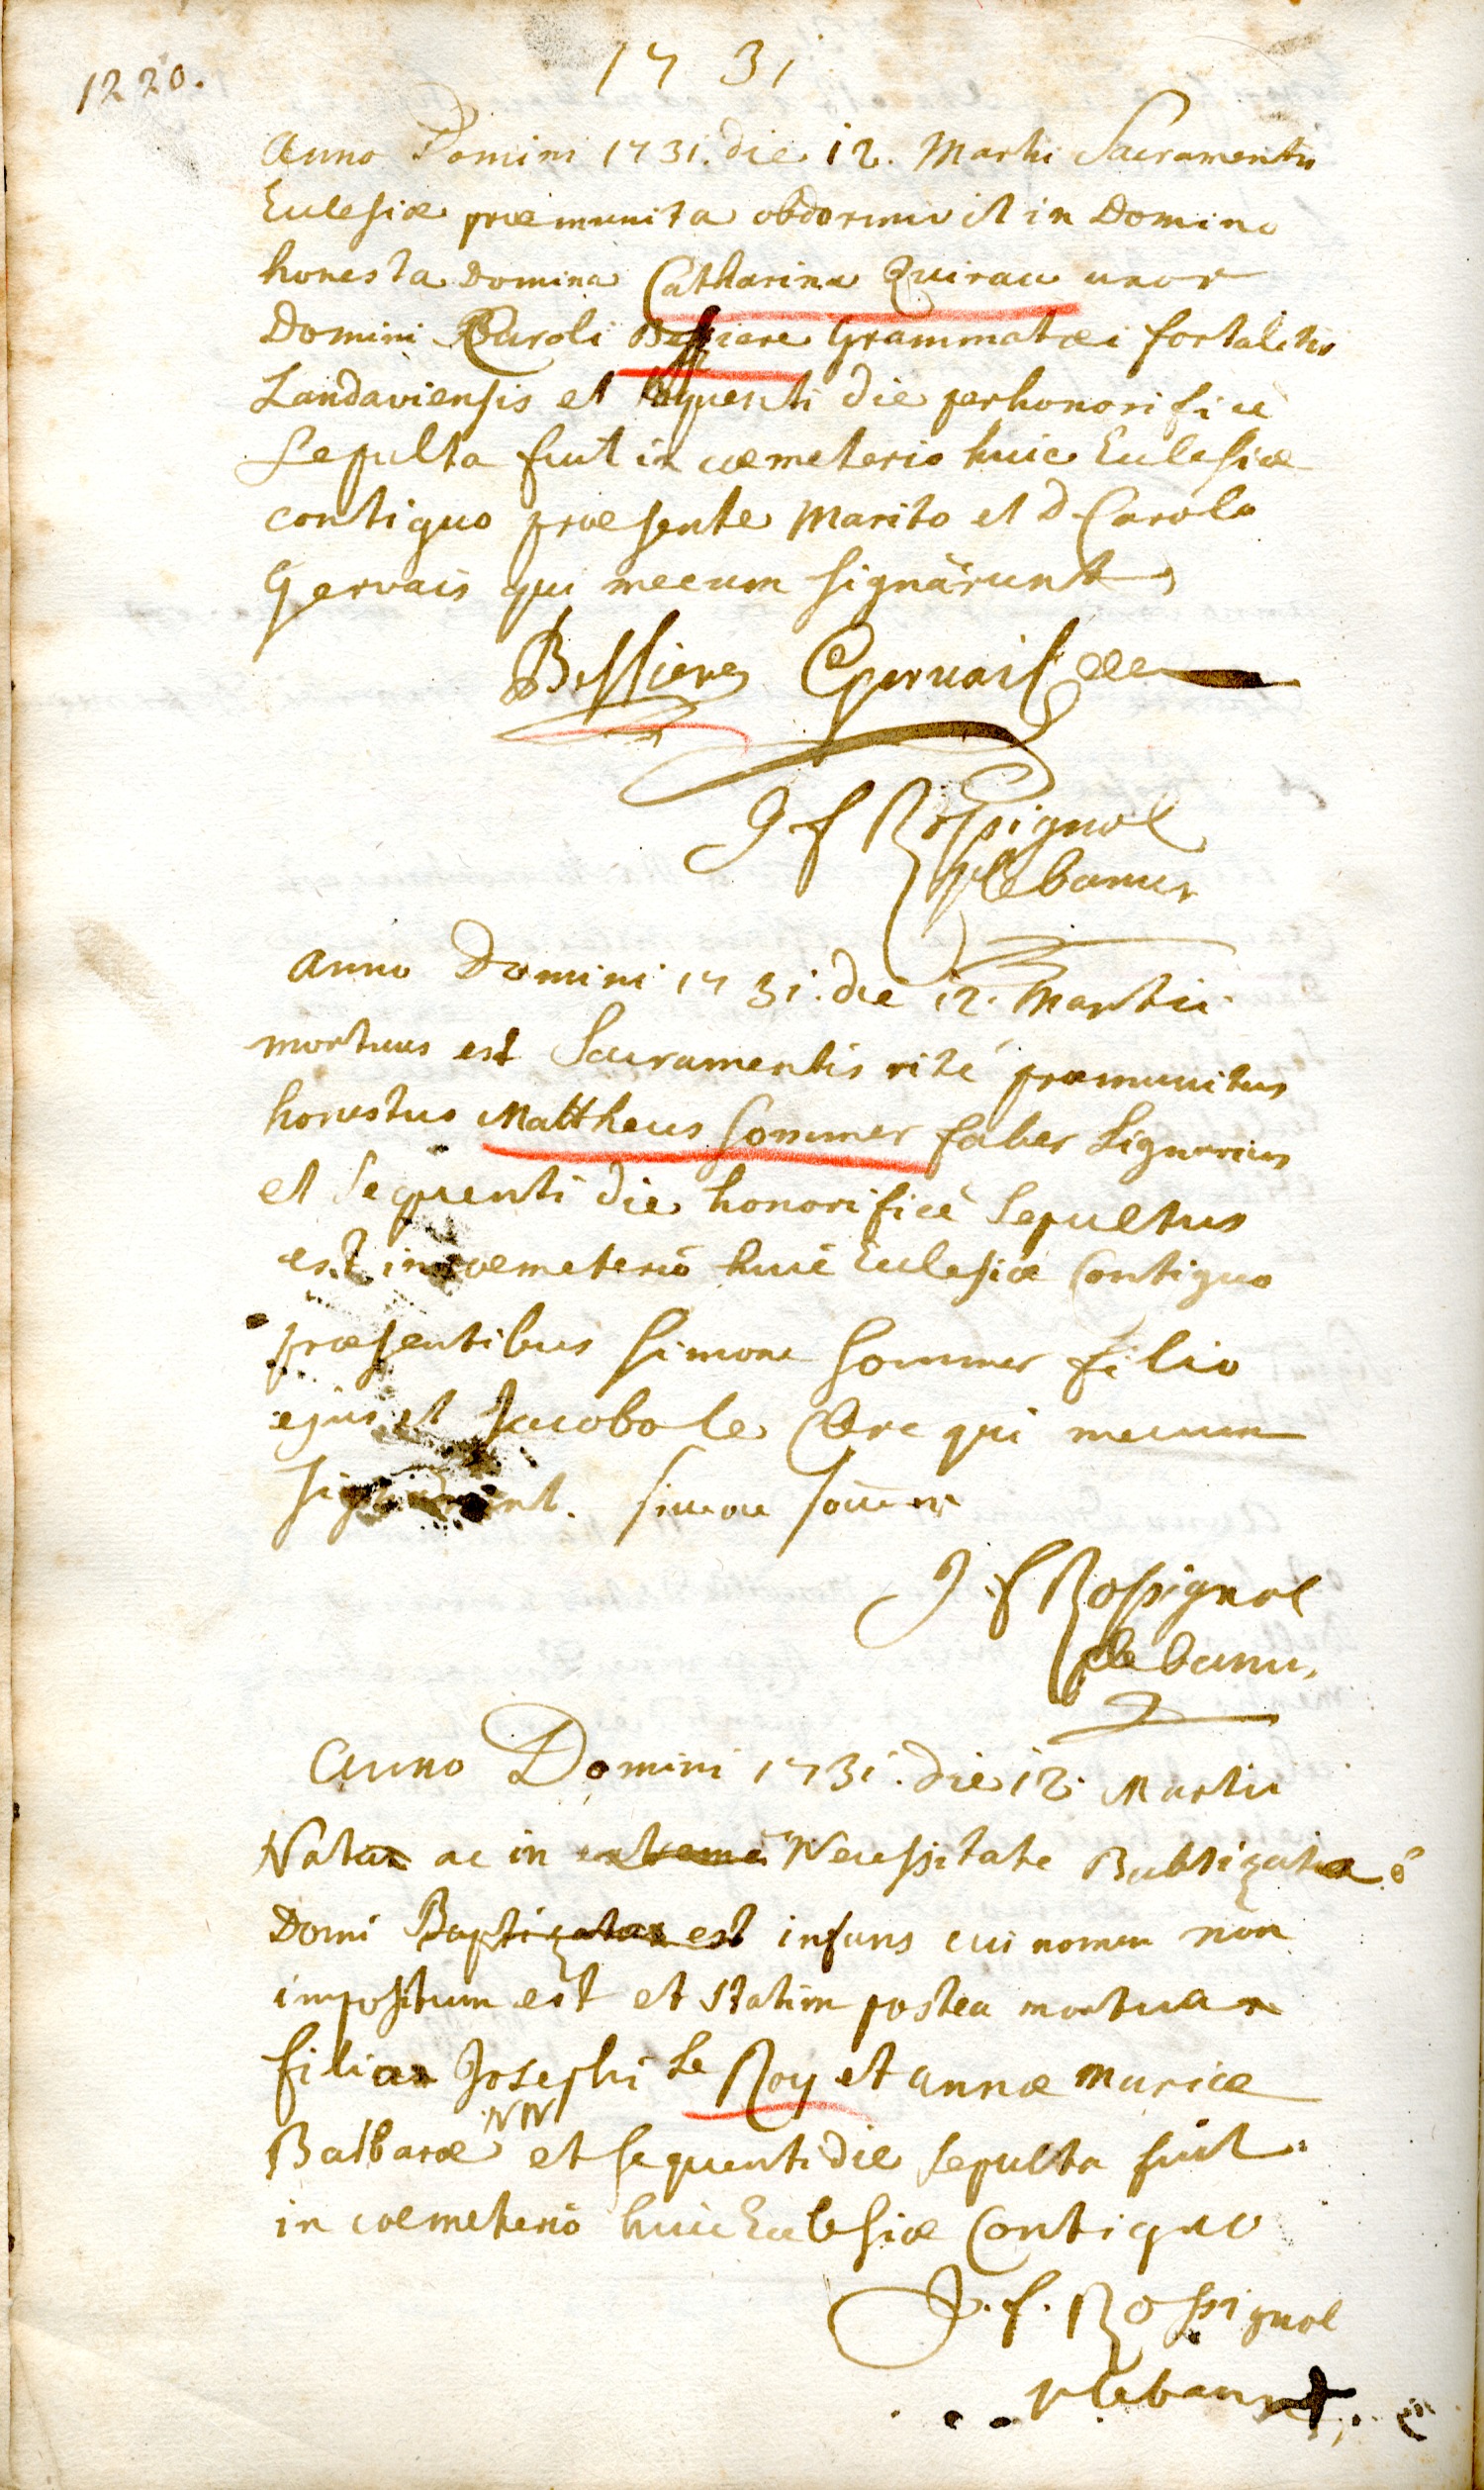 1731
1220.
Anno Domini 1731. die 12. Martii Sacramentis
Ecclesiæ præmunita obdormivit in Domino
honesta Domina Catharina Quirau uxor
Domini Caroli Bessiere Grammatæi fortalitii
Landaviensis et sequenti die perhonorificè
Sepulta fuit in cœmeterio huic Ecclesiæ
contiguo præsente Marito et d Carolo
Gervais qui mecum signârunt
Bessiere CGervais
J f Rossignol
plebanus
Anno Domini 1731. die 12. Martii
mortuus est Sacramentis rité præmunitus
honestus Mattheus Sommer faber Lignarius
et Sequenti die honorificè Sepultus
est in cœmeterio huic Ecclesiæ Contiguo
præsentibus Simone Sommer filio
ejus et Jacobo le Clerc qui mecum
signârunt. Simon Somer
J. f Rossignol
plebanus
Anno Domini 1731. die 12. Martii
Nata ac in extrema Necessitate Babtizata
Domi Baptizatus est infans cui nomen non
impositum est et statim postea mortua
filia Josephi Le Roy et annæ mariæ
Balbaræ NN et sequenti die sepulta fuit
in cœmeterio huic Ecclesiæ Contiguo
J. f. Rossignol
plebanus